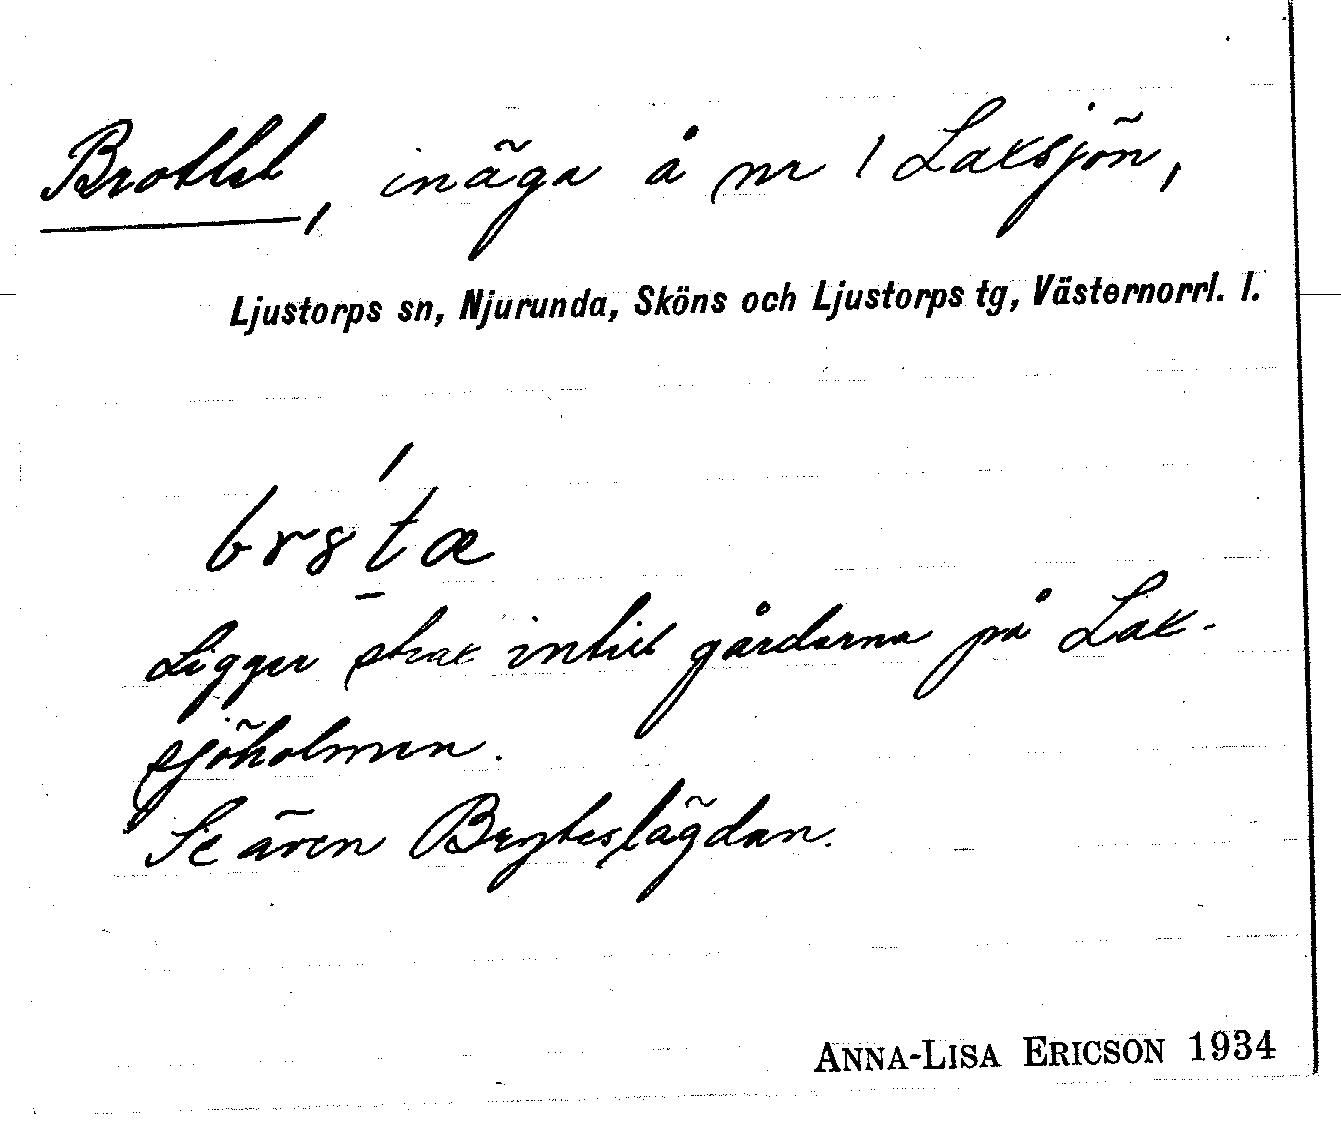 Brottet, inäga å nr 1 Laksjön,
Ljustorps sn, Njurunda, Sköns och Ljustorps tg, Västernorrl. l.
Ligger strax intill gårdarna på Lak-
sjöholmen.
Se även Bryteslägdan.
ANNA-LISA ERICSON 1934